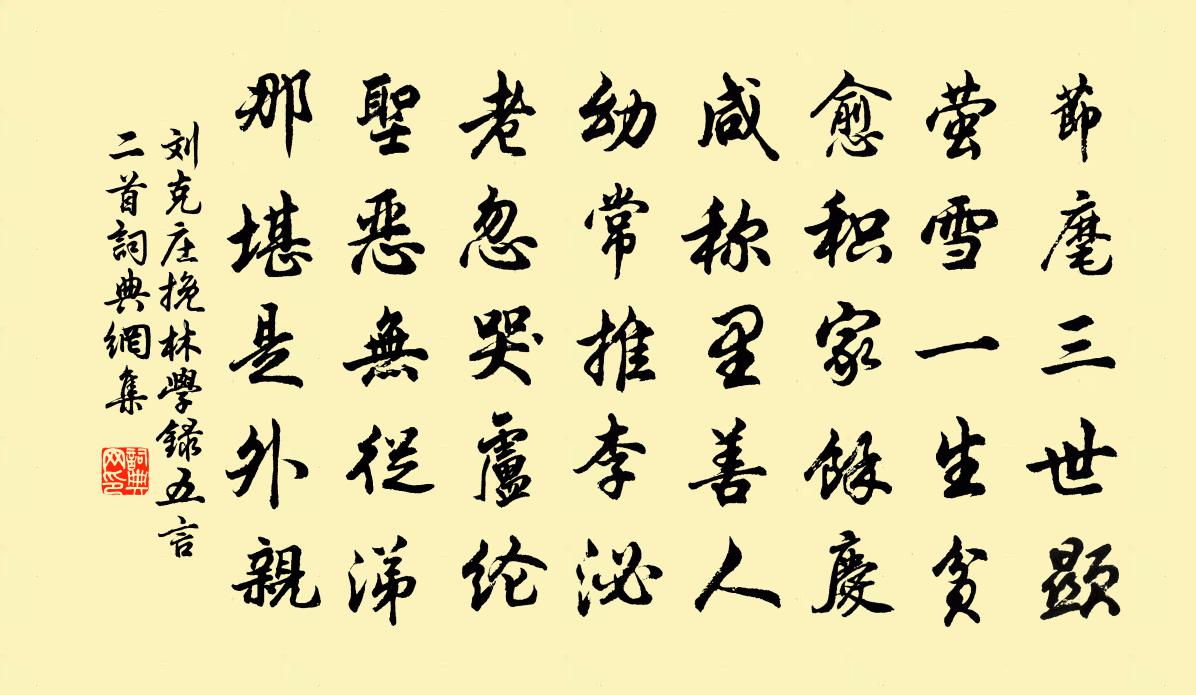 節麾三世顯
萤雪一生贫
愈积家餘慶
咸称里善人
幼常推李泌
老忽哭盧纶
聖恶無從涕
那堪是外親
刘克庄挽林學録五言
二首詞典網集
詞典网印